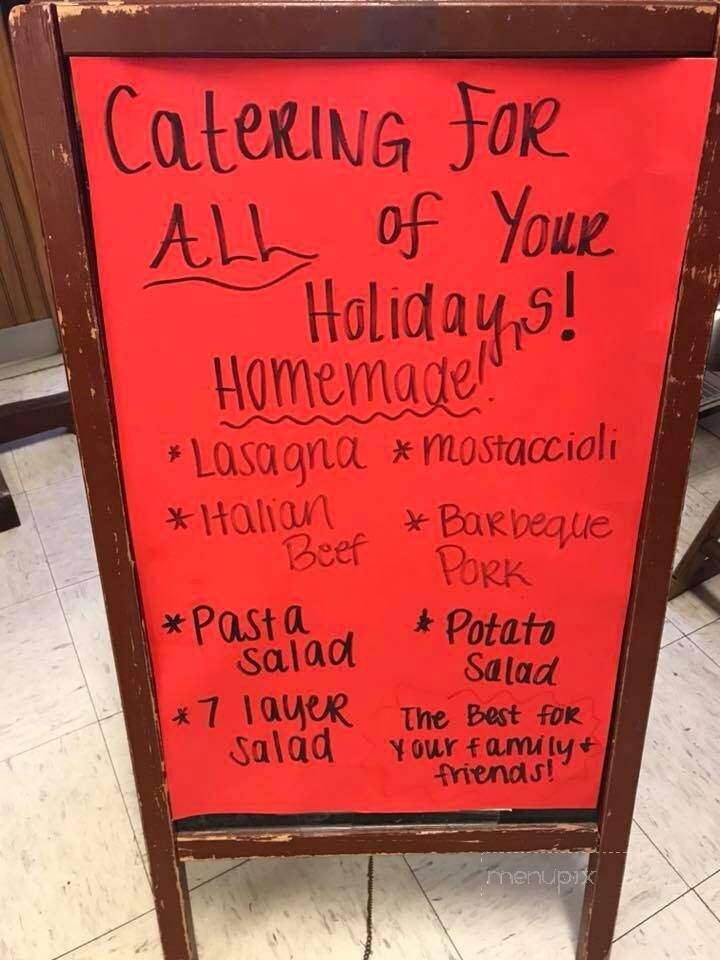 Catering for
ALL of Your
Holidays!
Homemade!
* Lasagna * mostaccioli
* Italian Beef * Barbeque Pork
* Pasta salad * Potato Salad
* 7 layer salad
The Best for
your family +
friends!
menupix